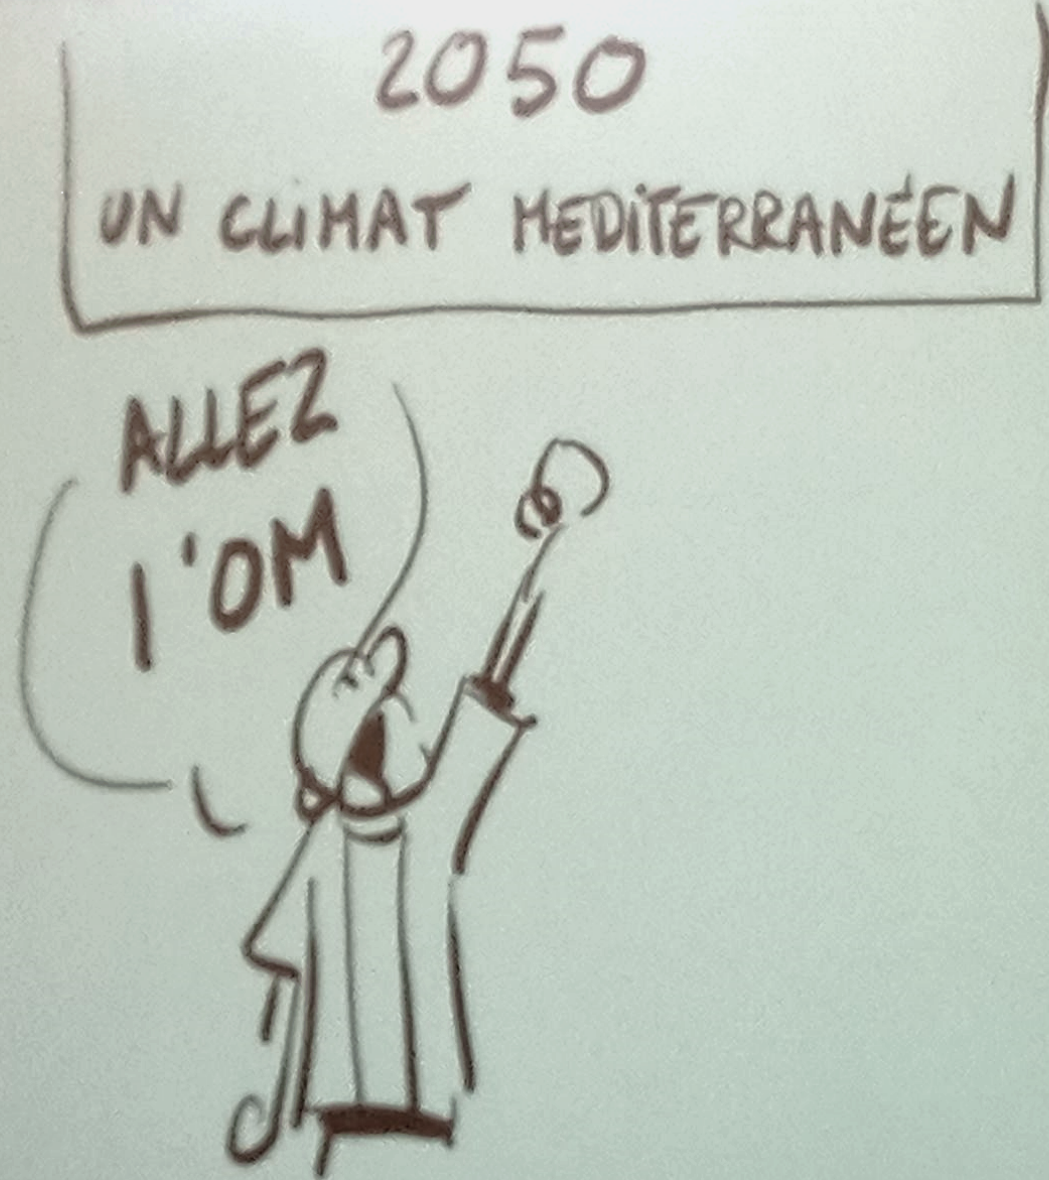 2050
UN CLIMAT MEDITERRANÉEN
ALLEZ
l'OM